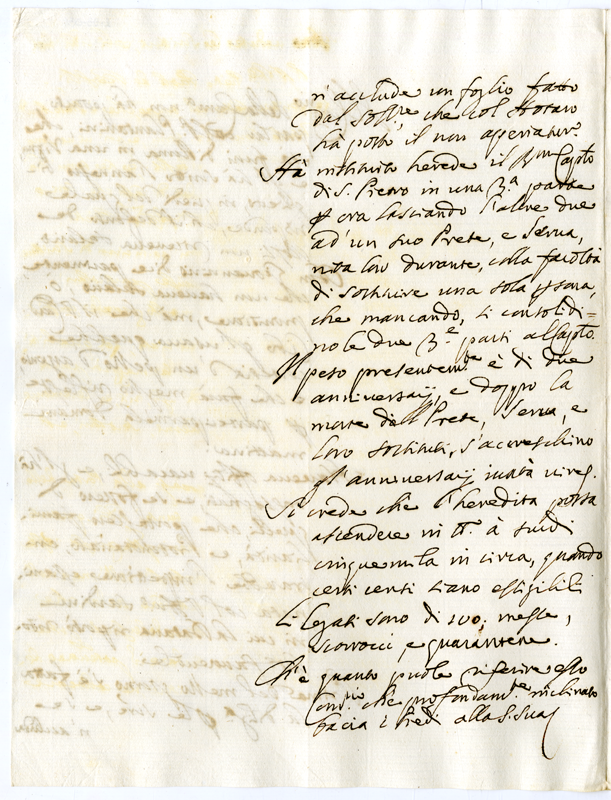 si acclude un foglio fatto
dal sodd.e che col Notaro
hà posto il non aperiatur.
Hà instituito herede il Rmo Capto
di S. Pietro in una 3.a parte
p ora lasciando l'altre due
ad' un suo Prete, e Serva,
vita loro durante, colla facoltà
di sostituire una sola psona,
che mancando, si consolidi=
no le due 3.e parti al Capto.
Il peso presentem.te è di due
anniversarij, e doppo la
morte del Prete, Serva, e
loro sostituti, s'accreschino
gl'anniversarij iuxta vires.
Si crede che l'heredità possa
ascendere in tt.o à scudi
cinque mila in circa, quando
certi censi siano essigibili
Li legati sono di 100. messe,
scorrocci, e quarantene.
Ch'è quanto puole riferire, esso
che profondam.te inclinato
bacia i Piedi alla S. Sua